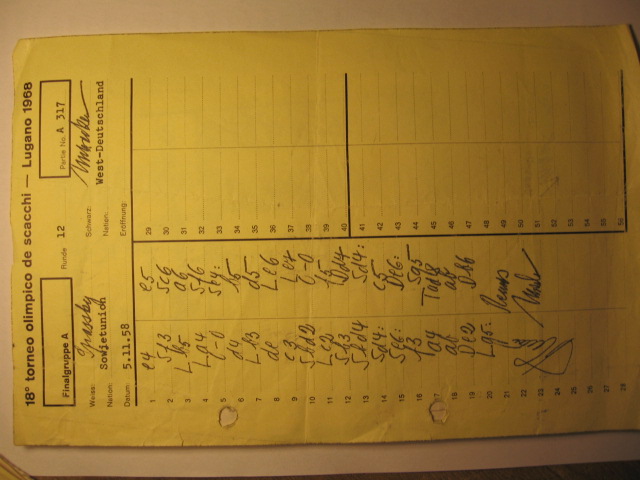 18° torneo olimpico de scacchi — Lugano 1968
Finalgruppe A Runde 12 Partie No. A 317
Weiss: Spassky Schwarz: Unzicker
Nation: Sowjetunion Nation: West-Deutschland
Datum: 5.11.58 Eröffnung:
1 e4 e5 29
2 Sf3 Sc6 30
3 Lb5 a6 31
4 La4 Sf6 32
5 0-0 Se4: 33
6 d4 b5 34
7 Lb3 d5 35
8 de Le6 36
9 c3 Le7 37
10 Sbd2 0-0 38
11 Lc2 f5 39
12 Sb3 Dd7 40
13 Sfd4 Sd4: 41
14 Sd4: c5 42
15 Se6: De6: 43
16 f3 Sg5 44
17 a4 45
18 ab ab 46
19 De2 47
20 Lg5: 48
21 Remis 49
22 50
23 51
24 52
25 53
26 54
27 55
28 56